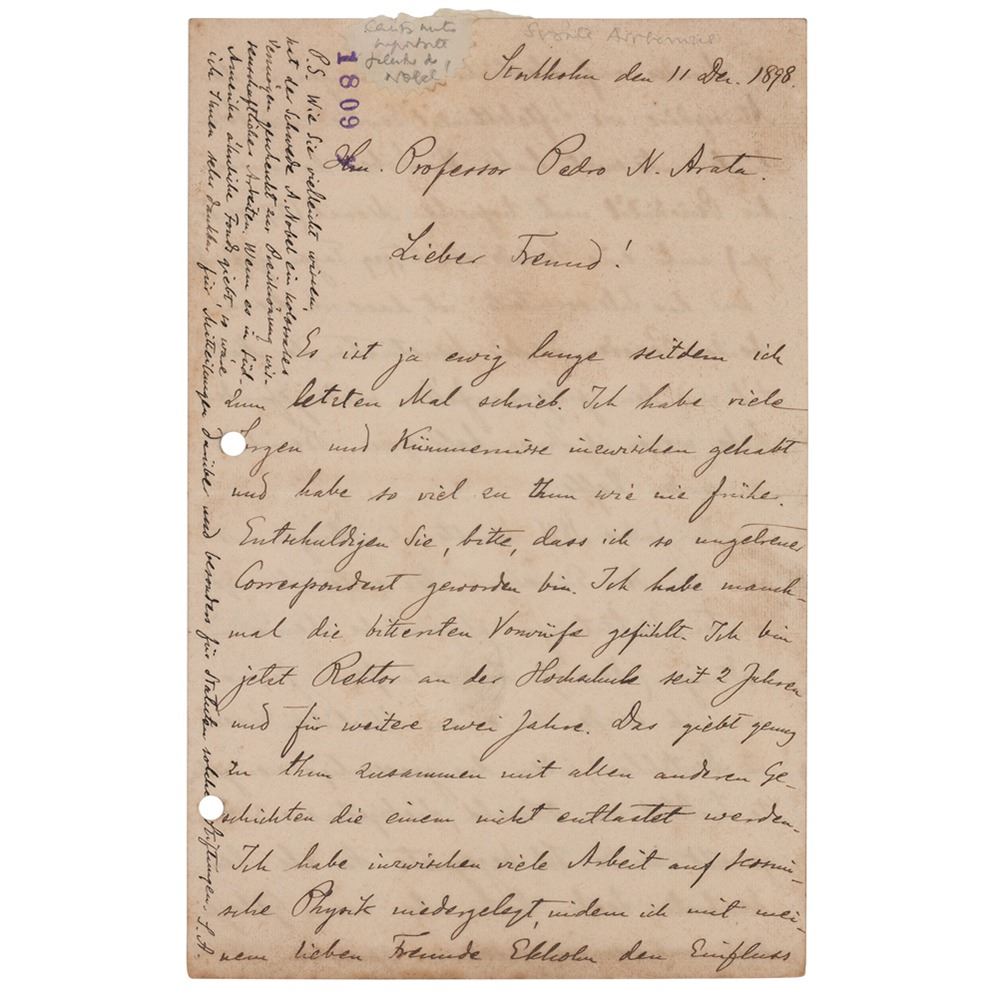 Stockholm den 11 Dec. 1898.
1809
Hrn. Professor Pedro N. Arata.
Lieber Freund!
Es ist ja ewig lange seitdem ich
zum letzten Mal schrieb. Ich habe viele
Sorgen und Kümmernisse inzwischen gehabt
und habe so viel zu thun wie nie früher.
Entschuldigen Sie, bitte, dass ich so ungetreuer
Correspondent geworden bin. Ich habe manch-
mal die bittersten Vorwürfe gefühlt. Ich bin
jetzt Rektor an der Hochschule seit 2 Jahren
und für weitere zwei Jahre. Das giebt genug
zu thun zusammen mit allen anderen Ge-
schichten die einem nicht entlastet werden.
Ich habe inzwischen viele Arbeit auf kosmi-
sche Physik niedergelegt, indem ich mit mei-
nem lieben Freunde Ekholm den Einfluss
P.S. Wie Sie vielleicht wissen,
hat der Schwede A. Nobel ein kolossales
Vermögen geschenkt zur Preiskrönung wis-
senschaftlicher Arbeiten. Wenn es in Süd-
Amerika ähnliche Fonds giebt, so wäre
ich Ihnen sehr dankbar für Mitteilungen darüber und besonders für Statuten solcher Stiftungen. S.A.